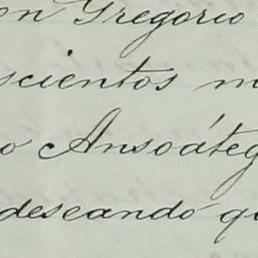 on Gregorio
scientos m
o Ansoáteg
deseando q